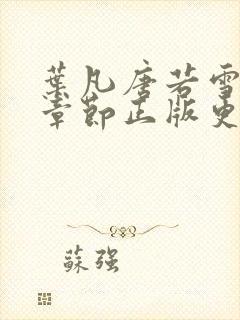 葉凡唐若雪
章節正版更
蘇強